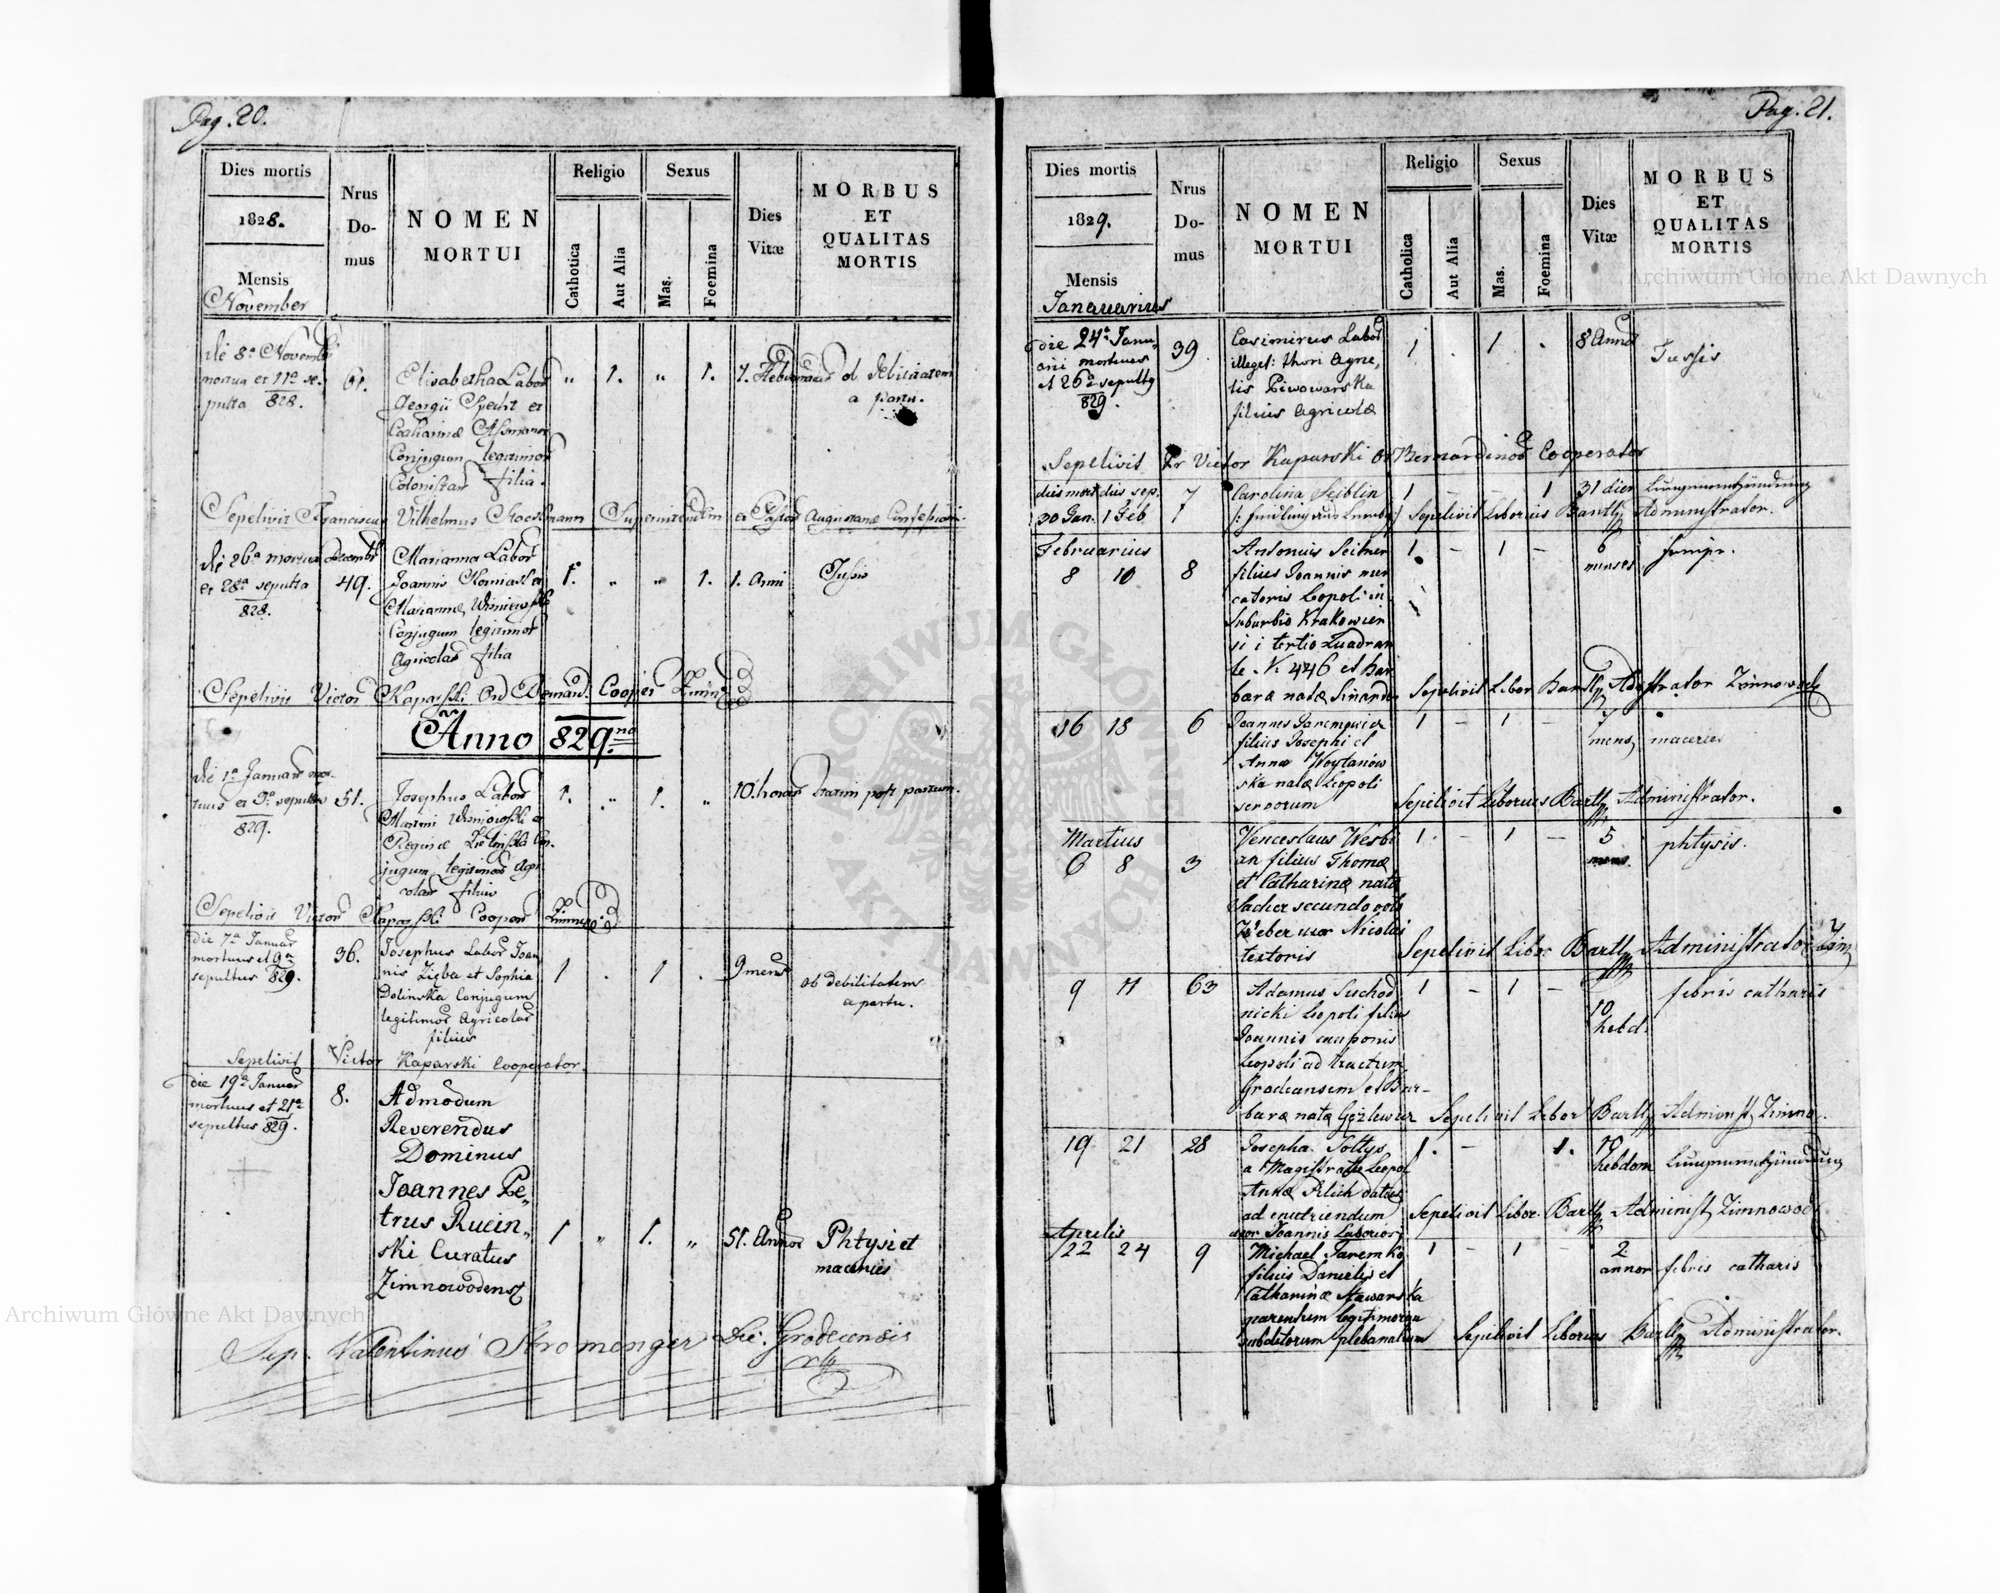 Pag. 20.
Dies mortis
1828.
Mensis
November
Nrus
Do-
mus
NOMEN
MORTUI
Religio
Catholica
Aut Alia
Sexus
Mas.
Foemina
Dies
Vitæ
MORBUS
ET
QUALITAS
MORTIS
die 8a Novemb
mortua et 11a se-
pulta 828.
61.
Elisabetha Labor
Georgii Specht et
Catharinæ
Conjugum legitimor
Colonistar filia.
" 1. " 1.
7. Hebdomad
ob debilitatem
a partu.
Sepelivit Franciscus Vilhelmus Superintendens et Pastor Augustanæ Confessionis
die 26a mortua Decembr
et 28a sepulta
828.
49.
Marianna Labor
Joannis et
Mariannæ Wiśniewska
Conjugum legitimor
Agricolar filia
1. " " 1.
1. Anni
Tussis
Sepelivit Victor Kaparski Ord Bernard. Cooper Zimn
Anno 829.no
die 1a Januar mor-
tuus et 3a sepultus
829.
51.
Josephus Labor
Martini Wiśniowski et
Reginæ Zielińska Con-
jugum legitimor Agri-
colar filius
1. " 1. "
10. horar
statim post partum.
Sepelivit Victor Kaparski Cooper Zimn
die 7a Januar
mortuus et 9a
sepultus 829.
36.
Josephus Labor Joan
nis Zięba et Sophia
Dolinska Conjugum
legitimor Agricolar
filius
1 . 1 .
9 mens
ob debilitatem
a partu.
Sepelivit Victor Kaparski Cooperator.
die 19a Januar
mortuus et 21a
sepultus 829.
8.
Admodum
Reverendus
Dominus
Joannes Pe-
trus Rucin-
ski Curatus
Zimnowodens
1 " 1. "
51. Annor
Phtysi et
macies
Sep. Valentinus Stromenger Dec: Grodecensis
Pag. 21.
Dies mortis
1829.
Mensis
Januarius
Nrus
Do-
mus
NOMEN
MORTUI
Religio
Catholica
Aut Alia
Sexus
Mas.
Foemina
Dies
Vitæ
MORBUS
ET
QUALITAS
MORTIS
die 24a Janu
arii mortuus
et 26a sepultg
829.
39
Casimirus Labor
illegel: thori Agne-
tis Piwowarska
filius Agricolæ
1 . 1 .
8 Annor
Tussis
Sepelivit Fr Victor Kaparski Or Bernardinor Cooperator
dies mort dies sep.
30 Jan. 1 Feb
7
Carolina Seiblin
1 - - 1
31 dier
Lungenentzündung
Sepelivit Liborius Bartl Administrator.
Februarius
8 10
8
Antonius Seitner
filius Joannis mer
catoris Leopoli in
Suburbio Krakowien
si i tertio Quadran
te N. 446 et Bar
baræ natæ
1 - 1 -
6
menses
Sepelivit Libor Bartl Adstrator Zimnowod
16 18
6
Joannes Jaremowicz
filius Josephi et
Annæ Woytanow
ska natæ Leopoli
servorum
1 - 1 -
7
mens,
macies
Sepelivit Liborius Bartl Administrator.
Martius
6 8
3
Venceslaus Wesbi
an filius Thomæ
et Catharinæ natæ
Sacher secundo voto
Weber uxor Nicolai
textoris
1 - 1 -
5
mens.
phtysis.
Sepelivit Libor. Bartl Administrator Zim
9 11
63
Adamus Suchod
nicki Leopoli filius
Joannis cauponis
Leopoli ad tractum
Grodeansem et Bar-
baræ natæ
1 - 1 -
10
hebd.
febris catharis
Sepelivit Libor Bartl Administ Zimno.
19 21
28
Josepha Soltys
a Magistratu Leopol
Annæ Pilich data
ad enutriendum
uxor Joannis
1. - 1.
10
hebdom
Lungenentzündung
Sepelivit Libor. Bartl Administ Zimnowod
Aprilis
22 24
9
Michael Jaremko
filius Danielis et
Catharinæ Stawarska
parentum legitimorum
subditorum plebanalium
1 - 1 -
2
annor
febris catharis
Sepelivit Liborius Bartl Administrator.
Archiwum Główne Akt Dawnych
Archiwum Główne Akt Dawnych
ARCHIWUM GŁÓWNE AKT DAWNYCH